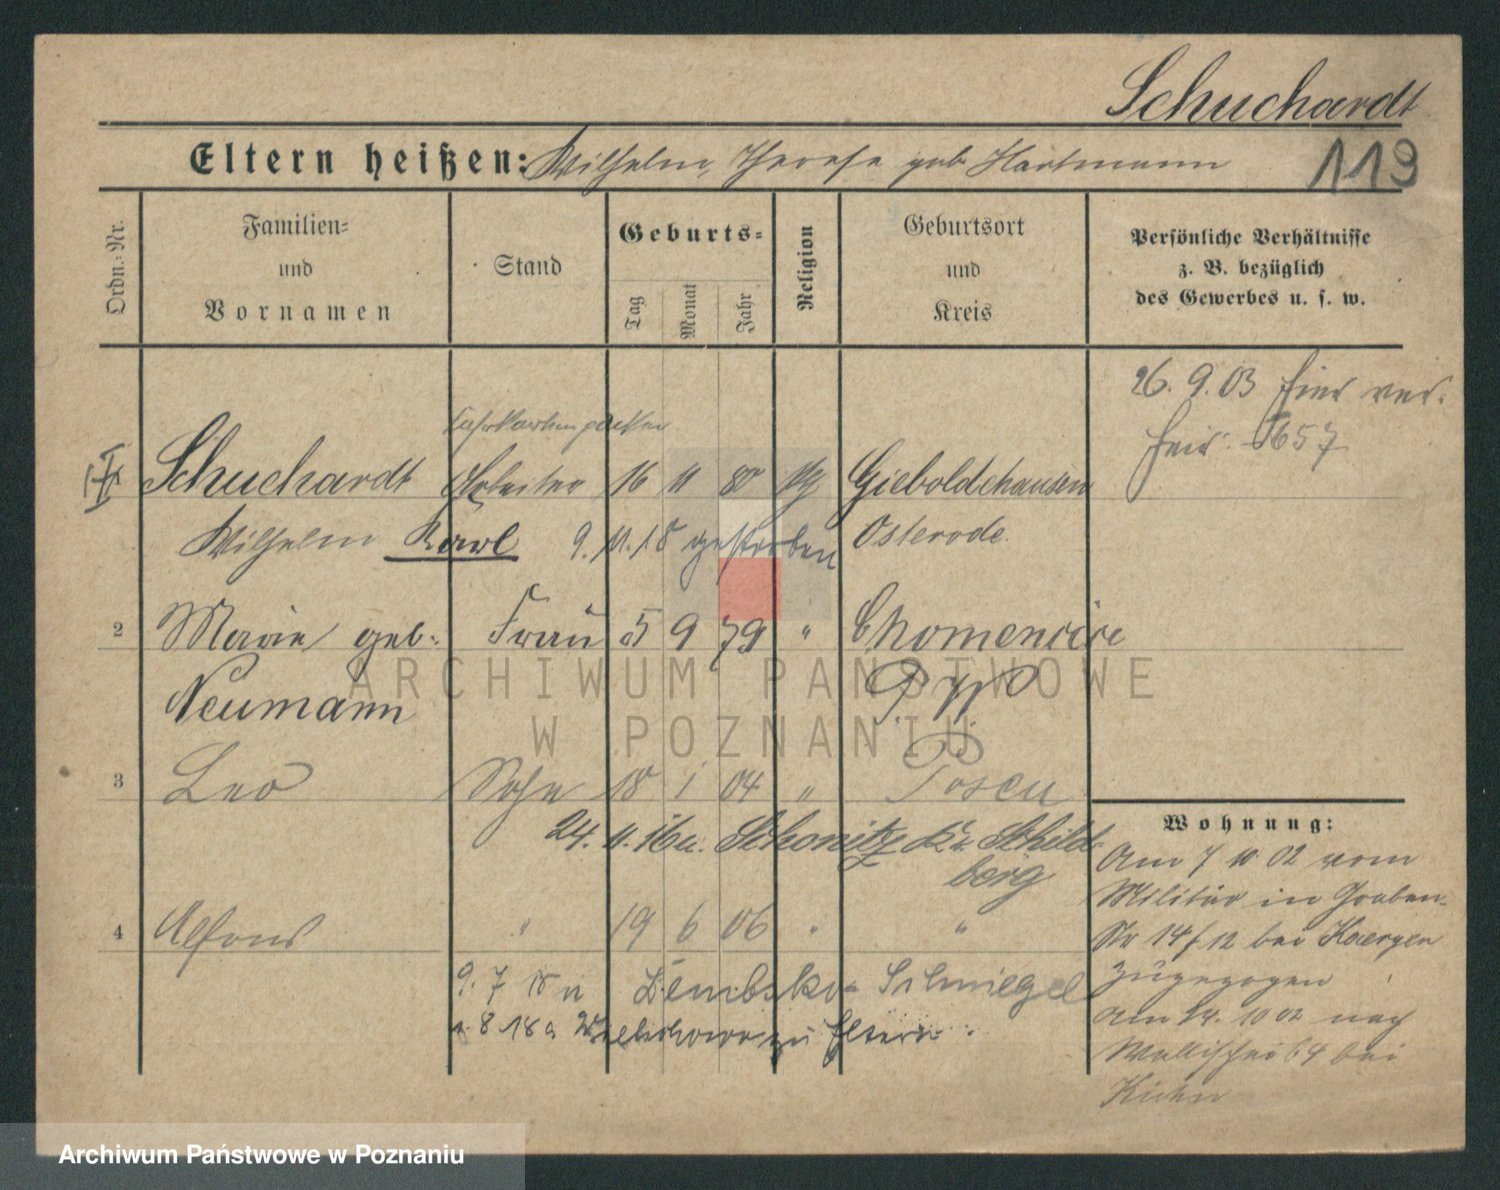 Schuchardt
Eltern heißen: Wilhelm, Therese geb Hartmann
119
Ordn.-Nr.
Familien-
und
Vornamen
Stand
Geburts-
Tag
Monat
Jahr
Religion
Geburtsort
und
Kreis
Persönliche Verhältnisse
z. B. bezüglich
des Gewerbes u. s. w.
26. 9. 03 hier ver.
heir. 657
Schuchardt Arbeiter 16 11 80 Gieboldehausen
Wilhelm Karl 9. 11. 18 gestorben Osterode
2 Marie geb. Frau 5 9 79 "
Neumann
3 Leo Sohn 18 1 04 " Posen
24. 11. 16 n. Schonitz Kr Schild-
berg
4 Alfons " 19 6 06 " "
9. 7 18 n Dembsko Schmiegel
8 18 a zu Eltern.
Wohnung:
Am 7 10 02 vom
Militär in Graben-
Str 14 bei
zugezogen
am 10 02 nach
Wallischei 64 bei
ARCHIWUM PAŃSTWOWE
W POZNANIU
Archiwum Państwowe w Poznaniu